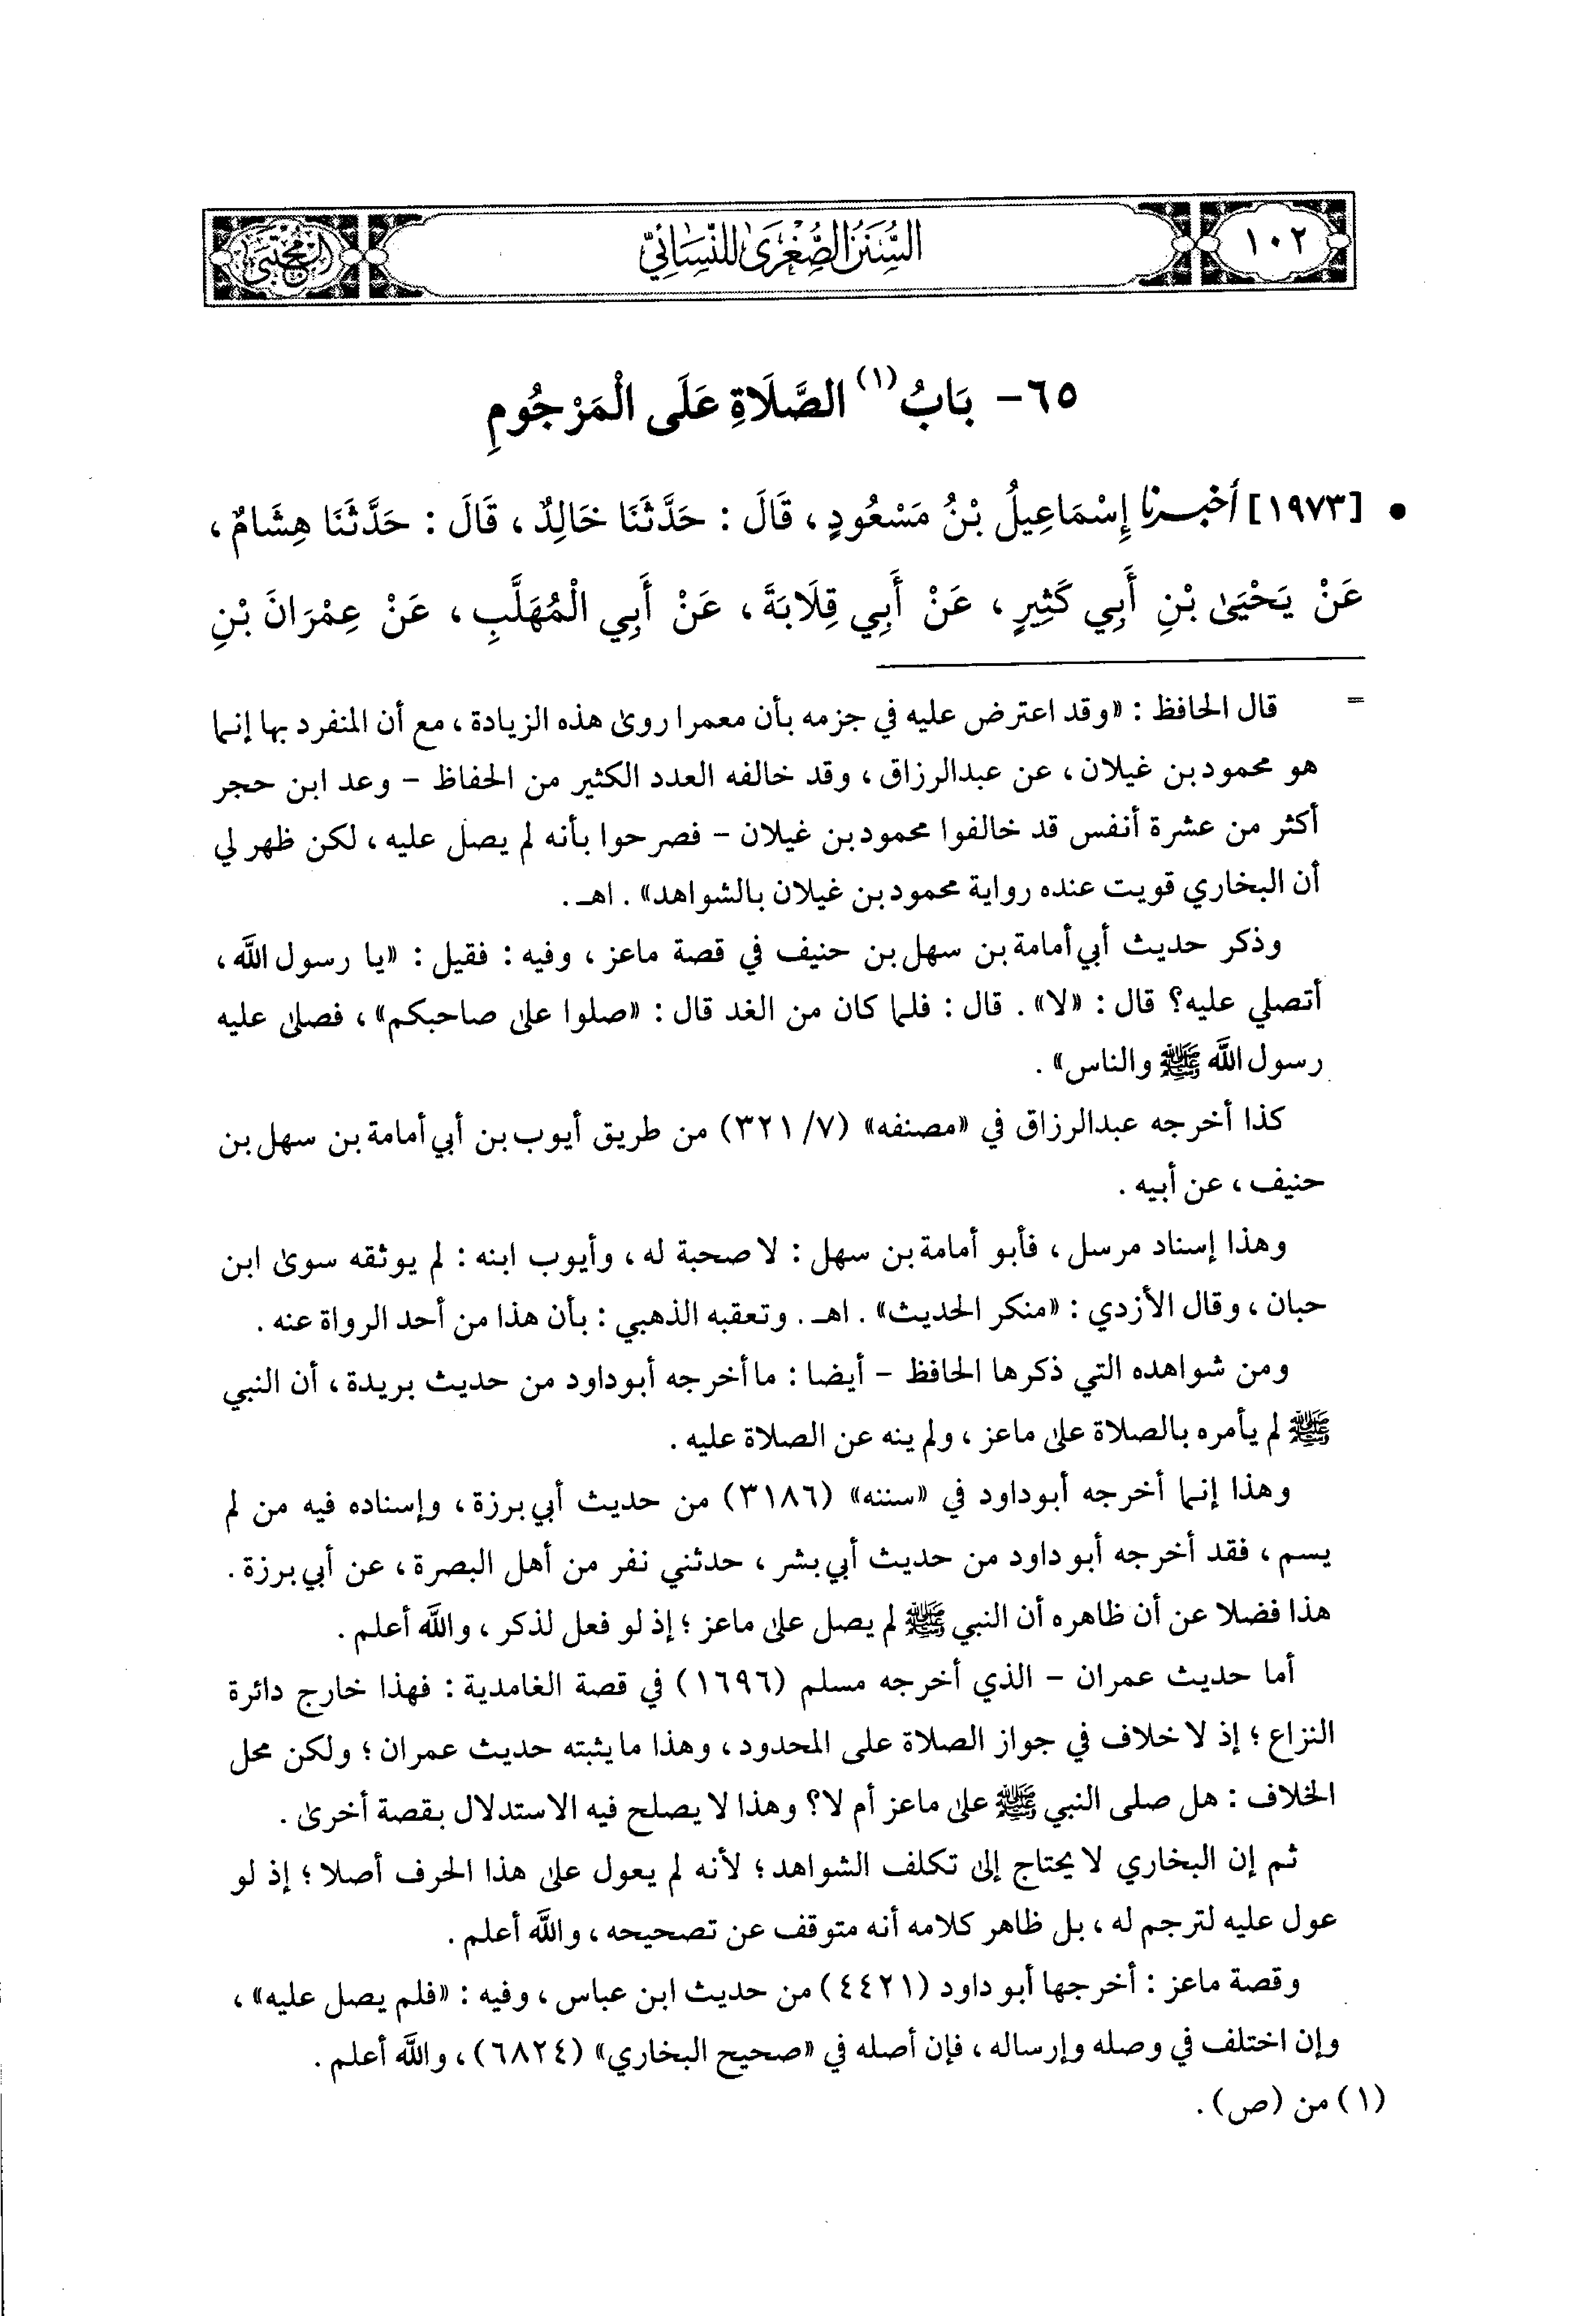 ١٠٢
السُّنَنُ الصُّغْرَىٰ لِلنَّسَائِيِّ
المجتبى
٦٥- بَابُ(١) الصَّلَاةِ عَلَى الْمَرْجُومِ
• [١٩٧٣] أخبرنا إِسْمَاعِيلُ بْنُ مَسْعُودٍ، قَالَ: حَدَّثَنَا خَالِدٌ، قَالَ: حَدَّثَنَا هِشَامٌ،
عَنْ يَحْيَىٰ بْنِ أَبِي كَثِيرٍ، عَنْ أَبِي قِلَابَةَ، عَنْ أَبِي الْمُهَلَّبِ، عَنْ عِمْرَانَ بْنِ
= قال الحافظ: «وقد اعترض عليه في جزمه بأن معمرا روىٰ هذه الزيادة، مع أن المنفرد بها إنما
هو محمود بن غيلان، عن عبدالرزاق، وقد خالفه العدد الكثير من الحفاظ - وعد ابن حجر
أكثر من عشرة أنفس قد خالفوا محمود بن غيلان - فصرحوا بأنه لم يصل عليه، لكن ظهر لي
أن البخاري قويت عنده رواية محمود بن غيلان بالشواهد». اهـ.
وذكر حديث أبي أمامة بن سهل بن حنيف في قصة ماعز، وفيه: فقيل: «يا رسول اللَّه،
أتصلي عليه؟ قال: «لا». قال: فلما كان من الغد قال: «صلوا علىٰ صاحبكم»، فصلىٰ عليه
رسول اللَّه ﷺ والناس».
كذا أخرجه عبدالرزاق في «مصنفه» (٧/ ٣٢١) من طريق أيوب بن أبي أمامة بن سهل بن
حنيف، عن أبيه.
وهذا إسناد مرسل، فأبو أمامة بن سهل: لا صحبة له، وأيوب ابنه: لم يوثقه سوىٰ ابن
حبان، وقال الأزدي: «منكر الحديث». اهـ. وتعقبه الذهبي: بأن هذا من أحد الرواة عنه.
ومن شواهده التي ذكرها الحافظ - أيضا: ما أخرجه أبوداود من حديث بريدة، أن النبي
ﷺ لم يأمره بالصلاة علىٰ ماعز، ولم ينه عن الصلاة عليه.
وهذا إنما أخرجه أبوداود في «سننه» (٣١٨٦) من حديث أبي برزة، وإسناده فيه من لم
يسم، فقد أخرجه أبو داود من حديث أبي بشر، حدثني نفر من أهل البصرة، عن أبي برزة.
هذا فضلا عن أن ظاهره أن النبي ﷺ لم يصل علىٰ ماعز؛ إذ لو فعل لذكر، واللَّه أعلم.
أما حديث عمران - الذي أخرجه مسلم (١٦٩٦) في قصة الغامدية: فهذا خارج دائرة
النزاع؛ إذ لا خلاف في جواز الصلاة على المحدود، وهذا ما يثبته حديث عمران؛ ولكن محل
الخلاف: هل صلى النبي ﷺ علىٰ ماعز أم لا؟ وهذا لا يصلح فيه الاستدلال بقصة أخرىٰ.
ثم إن البخاري لا يحتاج إلىٰ تكلف الشواهد؛ لأنه لم يعول علىٰ هذا الحرف أصلا؛ إذ لو
عول عليه لترجم له، بل ظاهر كلامه أنه متوقف عن تصحيحه، واللَّه أعلم.
وقصة ماعز: أخرجها أبو داود (٤٤٢١) من حديث ابن عباس، وفيه: «فلم يصل عليه»،
وإن اختلف في وصله وإرساله، فإن أصله في «صحيح البخاري» (٦٨٢٤)، واللَّه أعلم.
(١) من (ص).